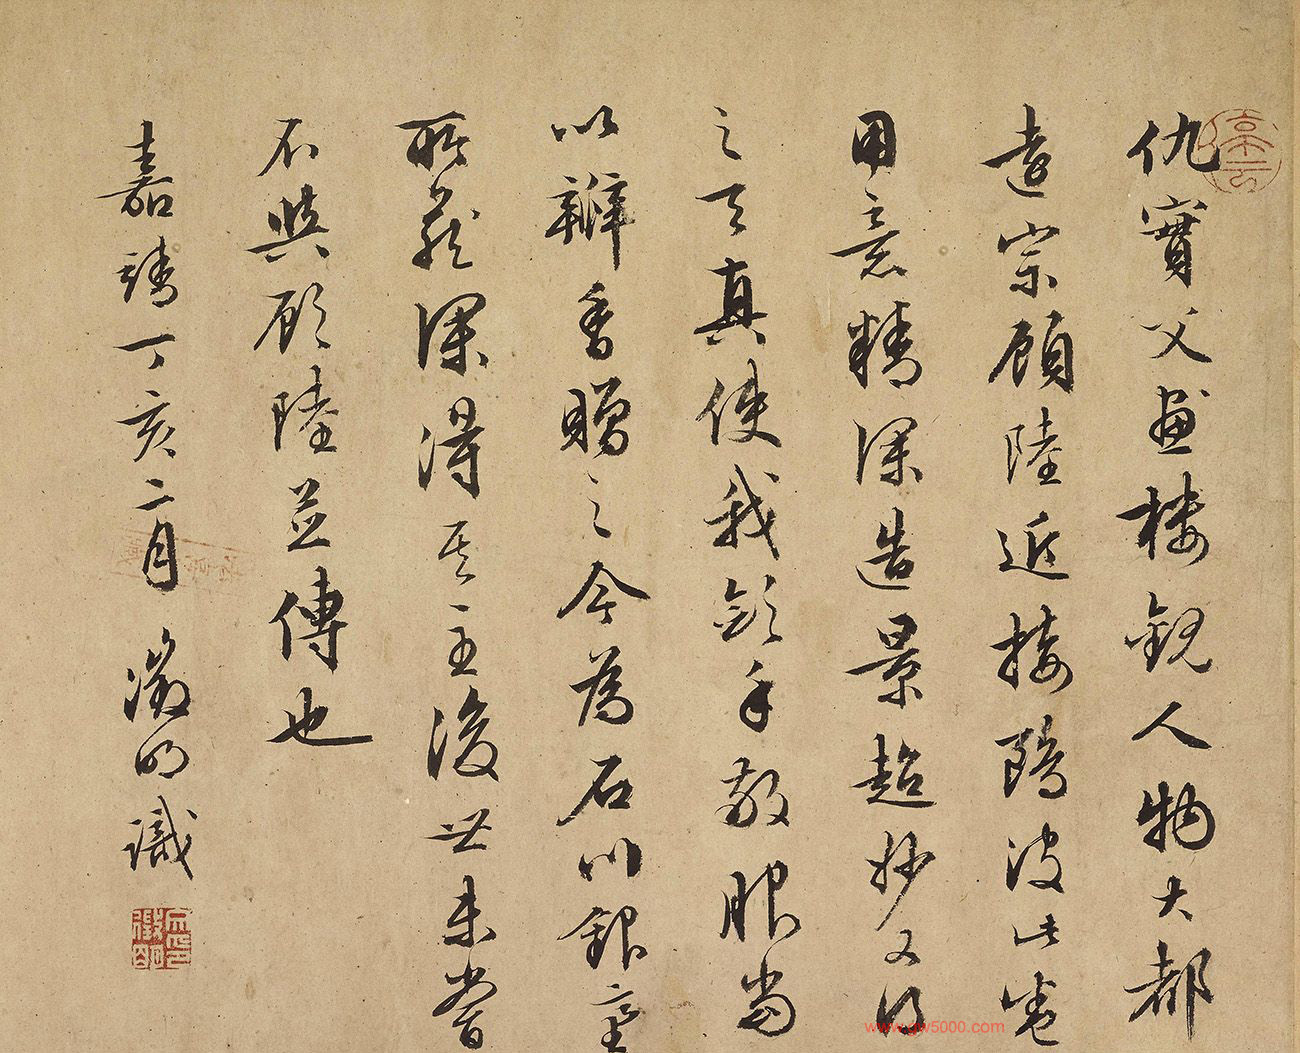 仇實父畫樓觀人物大都
遠宗顧陸近接此卷
用意精深造景超妙又得
之天真使我歛手敬服當
以瓣香贈之今為石川銀臺
所藏深得其主後世未嘗
不與顧陸並傳也
嘉靖丁亥二月 徵明識
www.gw5000.com